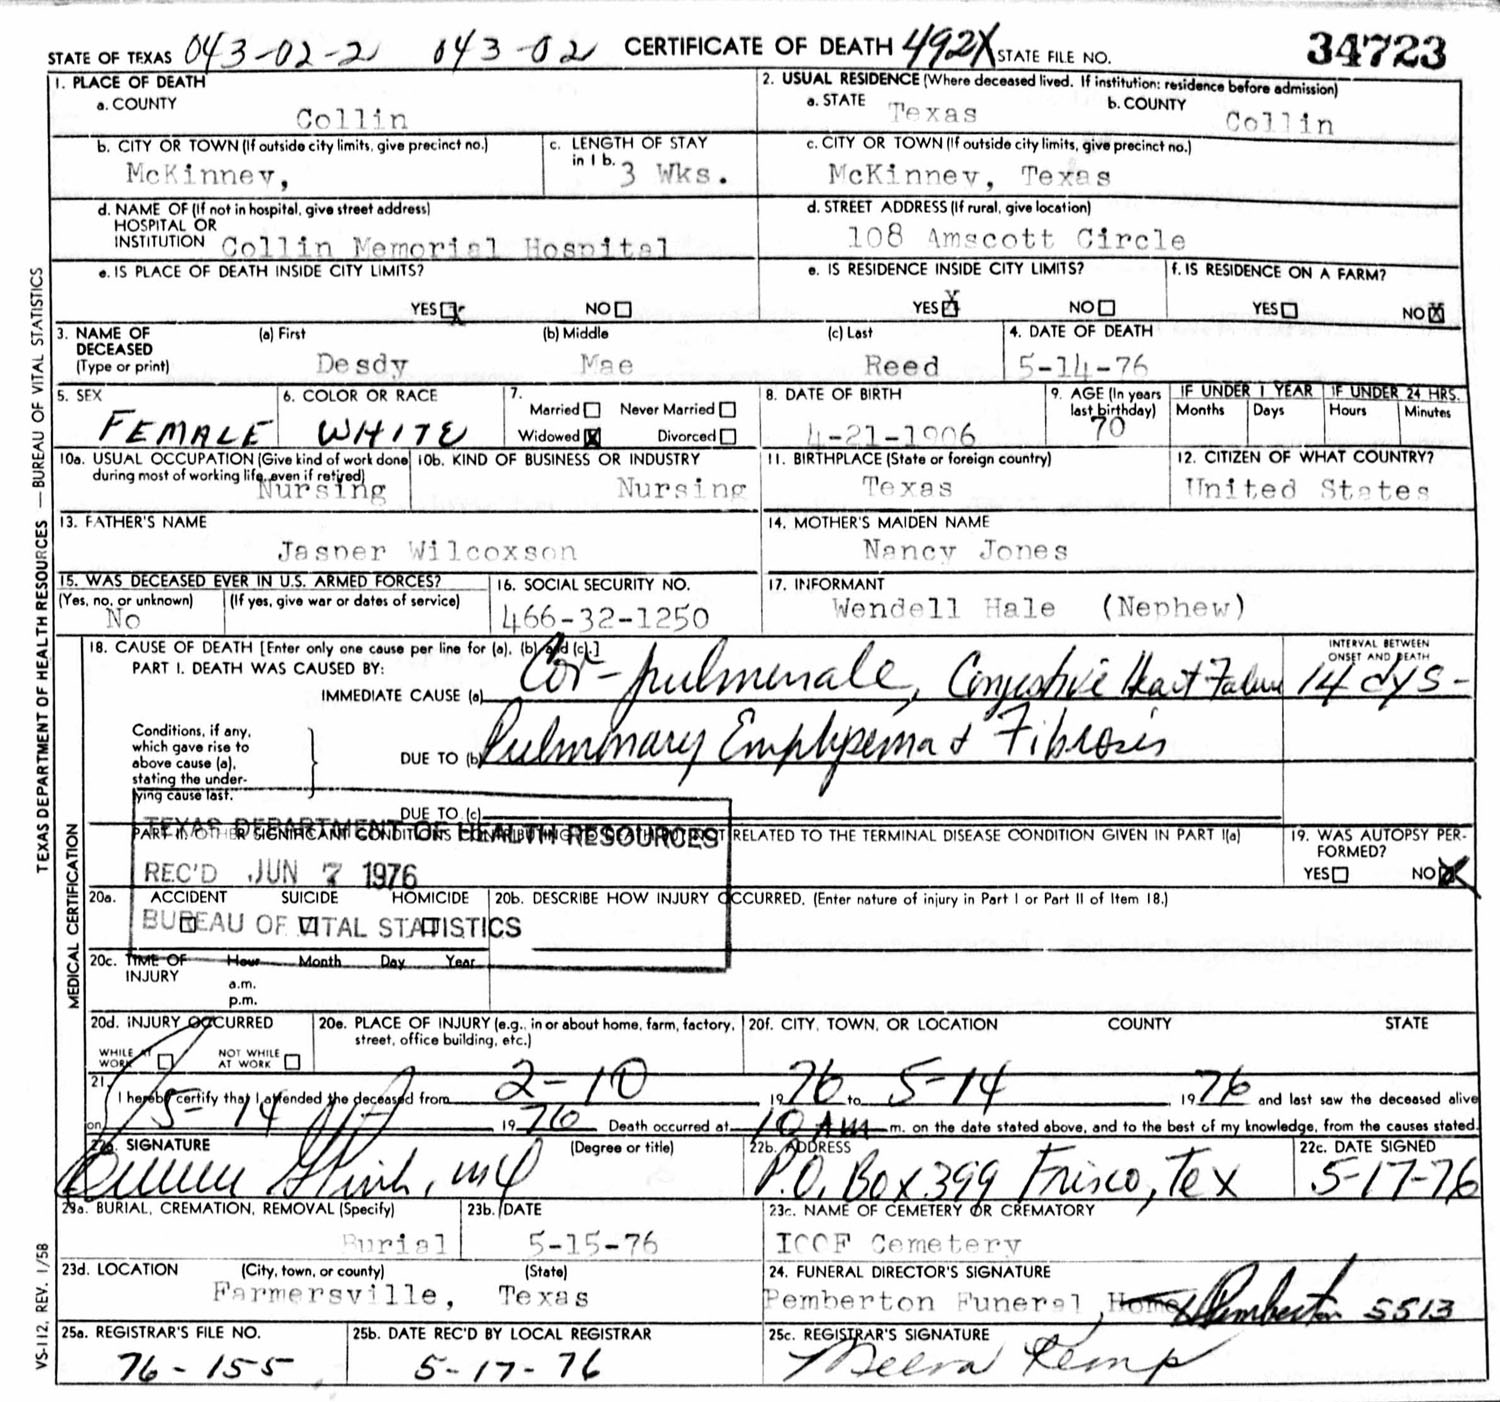 STATE OF TEXAS 043-02-2 043-02 CERTIFICATE OF DEATH 492X STATE FILE NO. 34723
1. PLACE OF DEATH
a. COUNTY
Collin
2. USUAL RESIDENCE (Where deceased lived. If institution: residence before admission)
a. STATE Texas b. COUNTY Collin
b. CITY OR TOWN (If outside city limits, give precinct no.)
McKinney,
c. LENGTH OF STAY
in 1 b. 3 Wks.
c. CITY OR TOWN (If outside city limits, give precinct no.)
McKinney, Texas
d. NAME OF (If not in hospital, give street address)
HOSPITAL OR
INSTITUTION Collin Memorial Hospital
d. STREET ADDRESS (If rural, give location)
108 Amscott Circle
e. IS PLACE OF DEATH INSIDE CITY LIMITS?
YES x NO
e. IS RESIDENCE INSIDE CITY LIMITS?
YES X NO
f. IS RESIDENCE ON A FARM?
YES NO X
3. NAME OF
DECEASED
(Type or print)
(a) First
Desdy
(b) Middle
Mae
(c) Last
Reed
4. DATE OF DEATH
5-14-76
5. SEX
FEMALE
6. COLOR OR RACE
WHITE
7.
Married Never Married
Widowed X Divorced
8. DATE OF BIRTH
4-21-1906
9. AGE (In years
last birthday)
70
IF UNDER 1 YEAR
Months Days
IF UNDER 24 HRS.
Hours Minutes
10a. USUAL OCCUPATION (Give kind of work done
during most of working life, even if retired)
Nursing
10b. KIND OF BUSINESS OR INDUSTRY
Nursing
11. BIRTHPLACE (State or foreign country)
Texas
12. CITIZEN OF WHAT COUNTRY?
United States
13. FATHER'S NAME
Jasper Wilcoxson
14. MOTHER'S MAIDEN NAME
Nancy Jones
15. WAS DECEASED EVER IN U.S. ARMED FORCES?
(Yes, no, or unknown) (If yes, give war or dates of service)
No
16. SOCIAL SECURITY NO.
466-32-1250
17. INFORMANT
Wendell Hale (Nephew)
18. CAUSE OF DEATH [Enter only one cause per line for (a), (b) and (c).]
PART I. DEATH WAS CAUSED BY:
IMMEDIATE CAUSE (a) Cor-pulmonale, Congestive Heart Failure
INTERVAL BETWEEN
ONSET AND DEATH
14 dys-
Conditions, if any,
which gave rise to
above cause (a),
stating the under-
lying cause last.
DUE TO (b) Pulmonary Emphysema & Fibrosis
DUE TO (c)
PART II. OTHER SIGNIFICANT CONDITIONS CONTRIBUTING TO DEATH BUT NOT RELATED TO THE TERMINAL DISEASE CONDITION GIVEN IN PART I(a)
19. WAS AUTOPSY PER-
FORMED?
YES NO X
TEXAS DEPARTMENT OF HEALTH RESOURCES
REC'D JUN 7 1976
BUREAU OF VITAL STATISTICS
20a. ACCIDENT SUICIDE HOMICIDE
20b. DESCRIBE HOW INJURY OCCURRED. (Enter nature of injury in Part I or Part II of Item 18.)
20c. TIME OF
INJURY
Hour Month Day Year
a.m.
p.m.
20d. INJURY OCCURRED
WHILE AT
WORK
NOT WHILE
AT WORK
20e. PLACE OF INJURY (e.g., in or about home, farm, factory,
street, office building, etc.)
20f. CITY, TOWN, OR LOCATION COUNTY STATE
21.
I hereby certify that I attended the deceased from 2-10 1976 to 5-14 1976 and last saw the deceased alive
on 5-14 1976 Death occurred at 10 AM m. on the date stated above, and to the best of my knowledge, from the causes stated.
22a. SIGNATURE (Degree or title)
MD
22b. ADDRESS
P.O. Box 399 Frisco, Tex
22c. DATE SIGNED
5-17-76
23a. BURIAL, CREMATION, REMOVAL (Specify)
Burial
23b. DATE
5-15-76
23c. NAME OF CEMETERY OR CREMATORY
IOOF Cemetery
23d. LOCATION (City, town, or county) (State)
Farmersville, Texas
24. FUNERAL DIRECTOR'S SIGNATURE
Pemberton Funeral Home Pemberton 5513
25a. REGISTRAR'S FILE NO.
76-155
25b. DATE REC'D BY LOCAL REGISTRAR
5-17-76
25c. REGISTRAR'S SIGNATURE
Kemp
TEXAS DEPARTMENT OF HEALTH RESOURCES — BUREAU OF VITAL STATISTICS
MEDICAL CERTIFICATION
VS-112, REV. 1/58